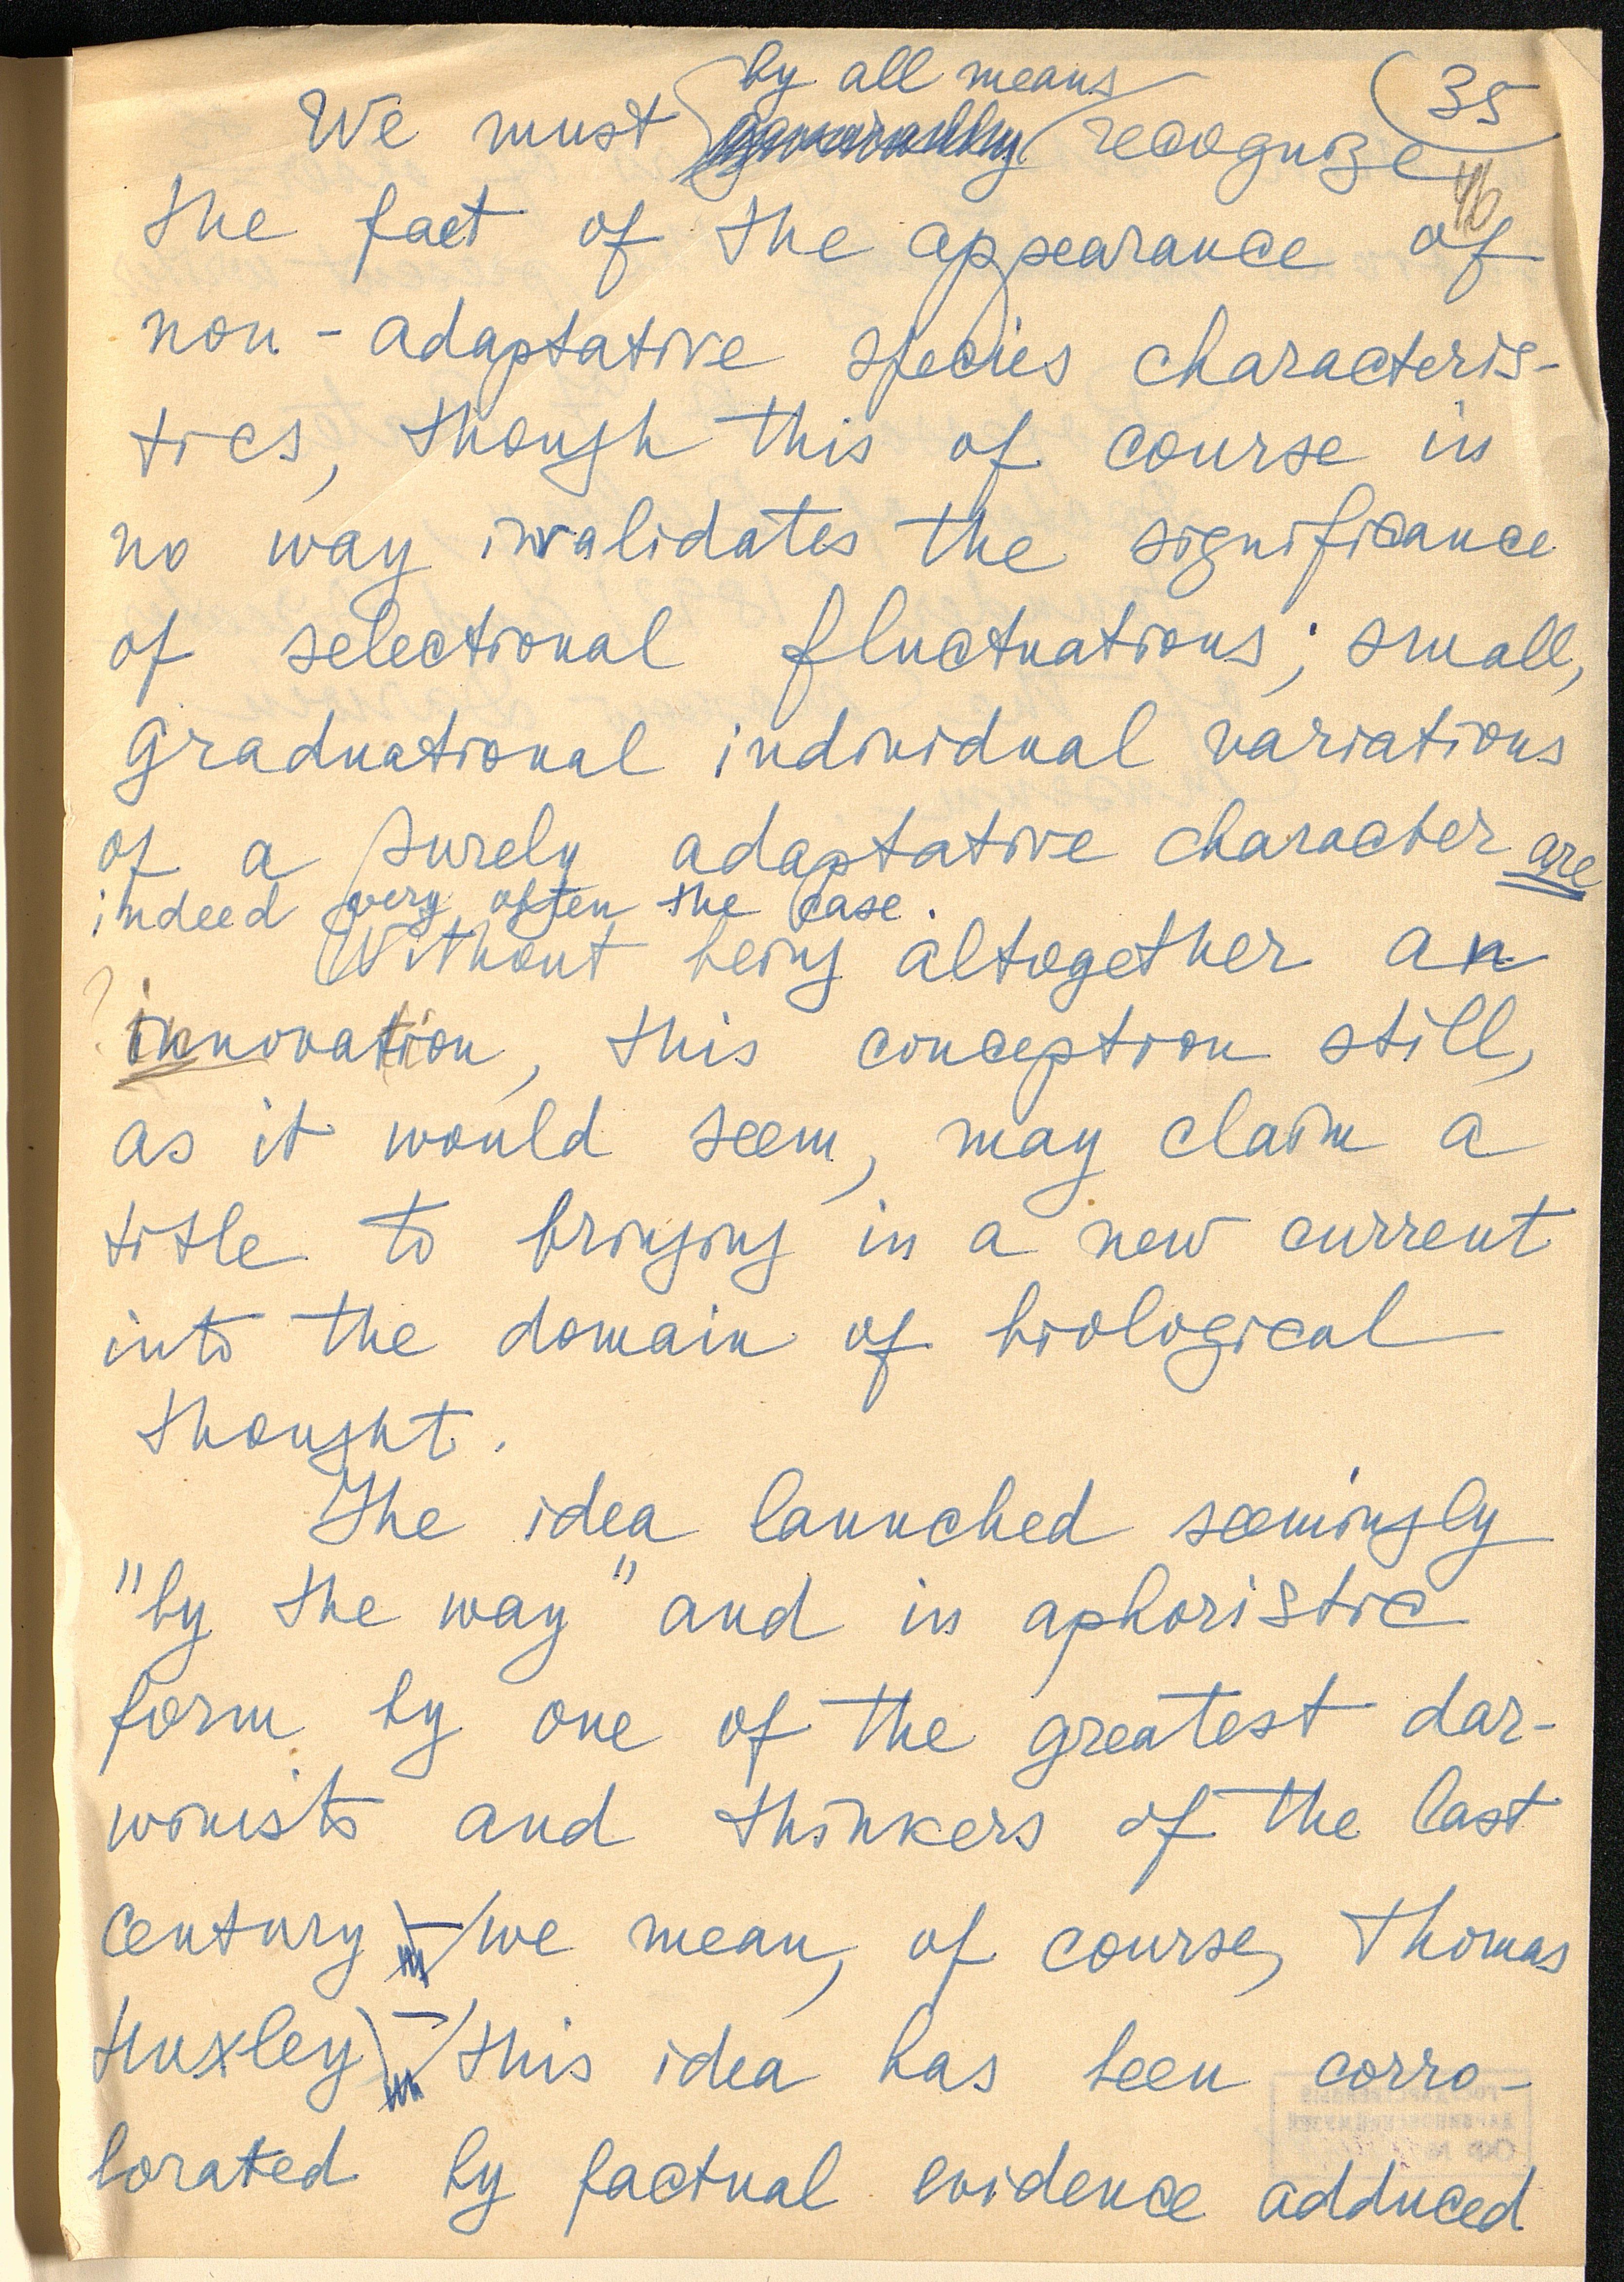 by all means
35
We must recognize
46
the fact of the appearance of
non-adaptative species characteris-
tics, though this of course in
no way invalidates the significance
of selectional fluctuations; small,
graduational individual variations
of a surely adaptative character are
indeed very often the case.
Without being altogether an
? innovation, this conception still,
as it would seem, may claim a
title to bringing in a new current
into the domain of biological
thought.
The idea launched seemingly
"by the way" and in aphoristic
form by one of the greatest dar-
winists and thinkers of the last
century – we mean, of course, Thomas
Huxley – this idea has been corro-
borated by factual evidence adduced